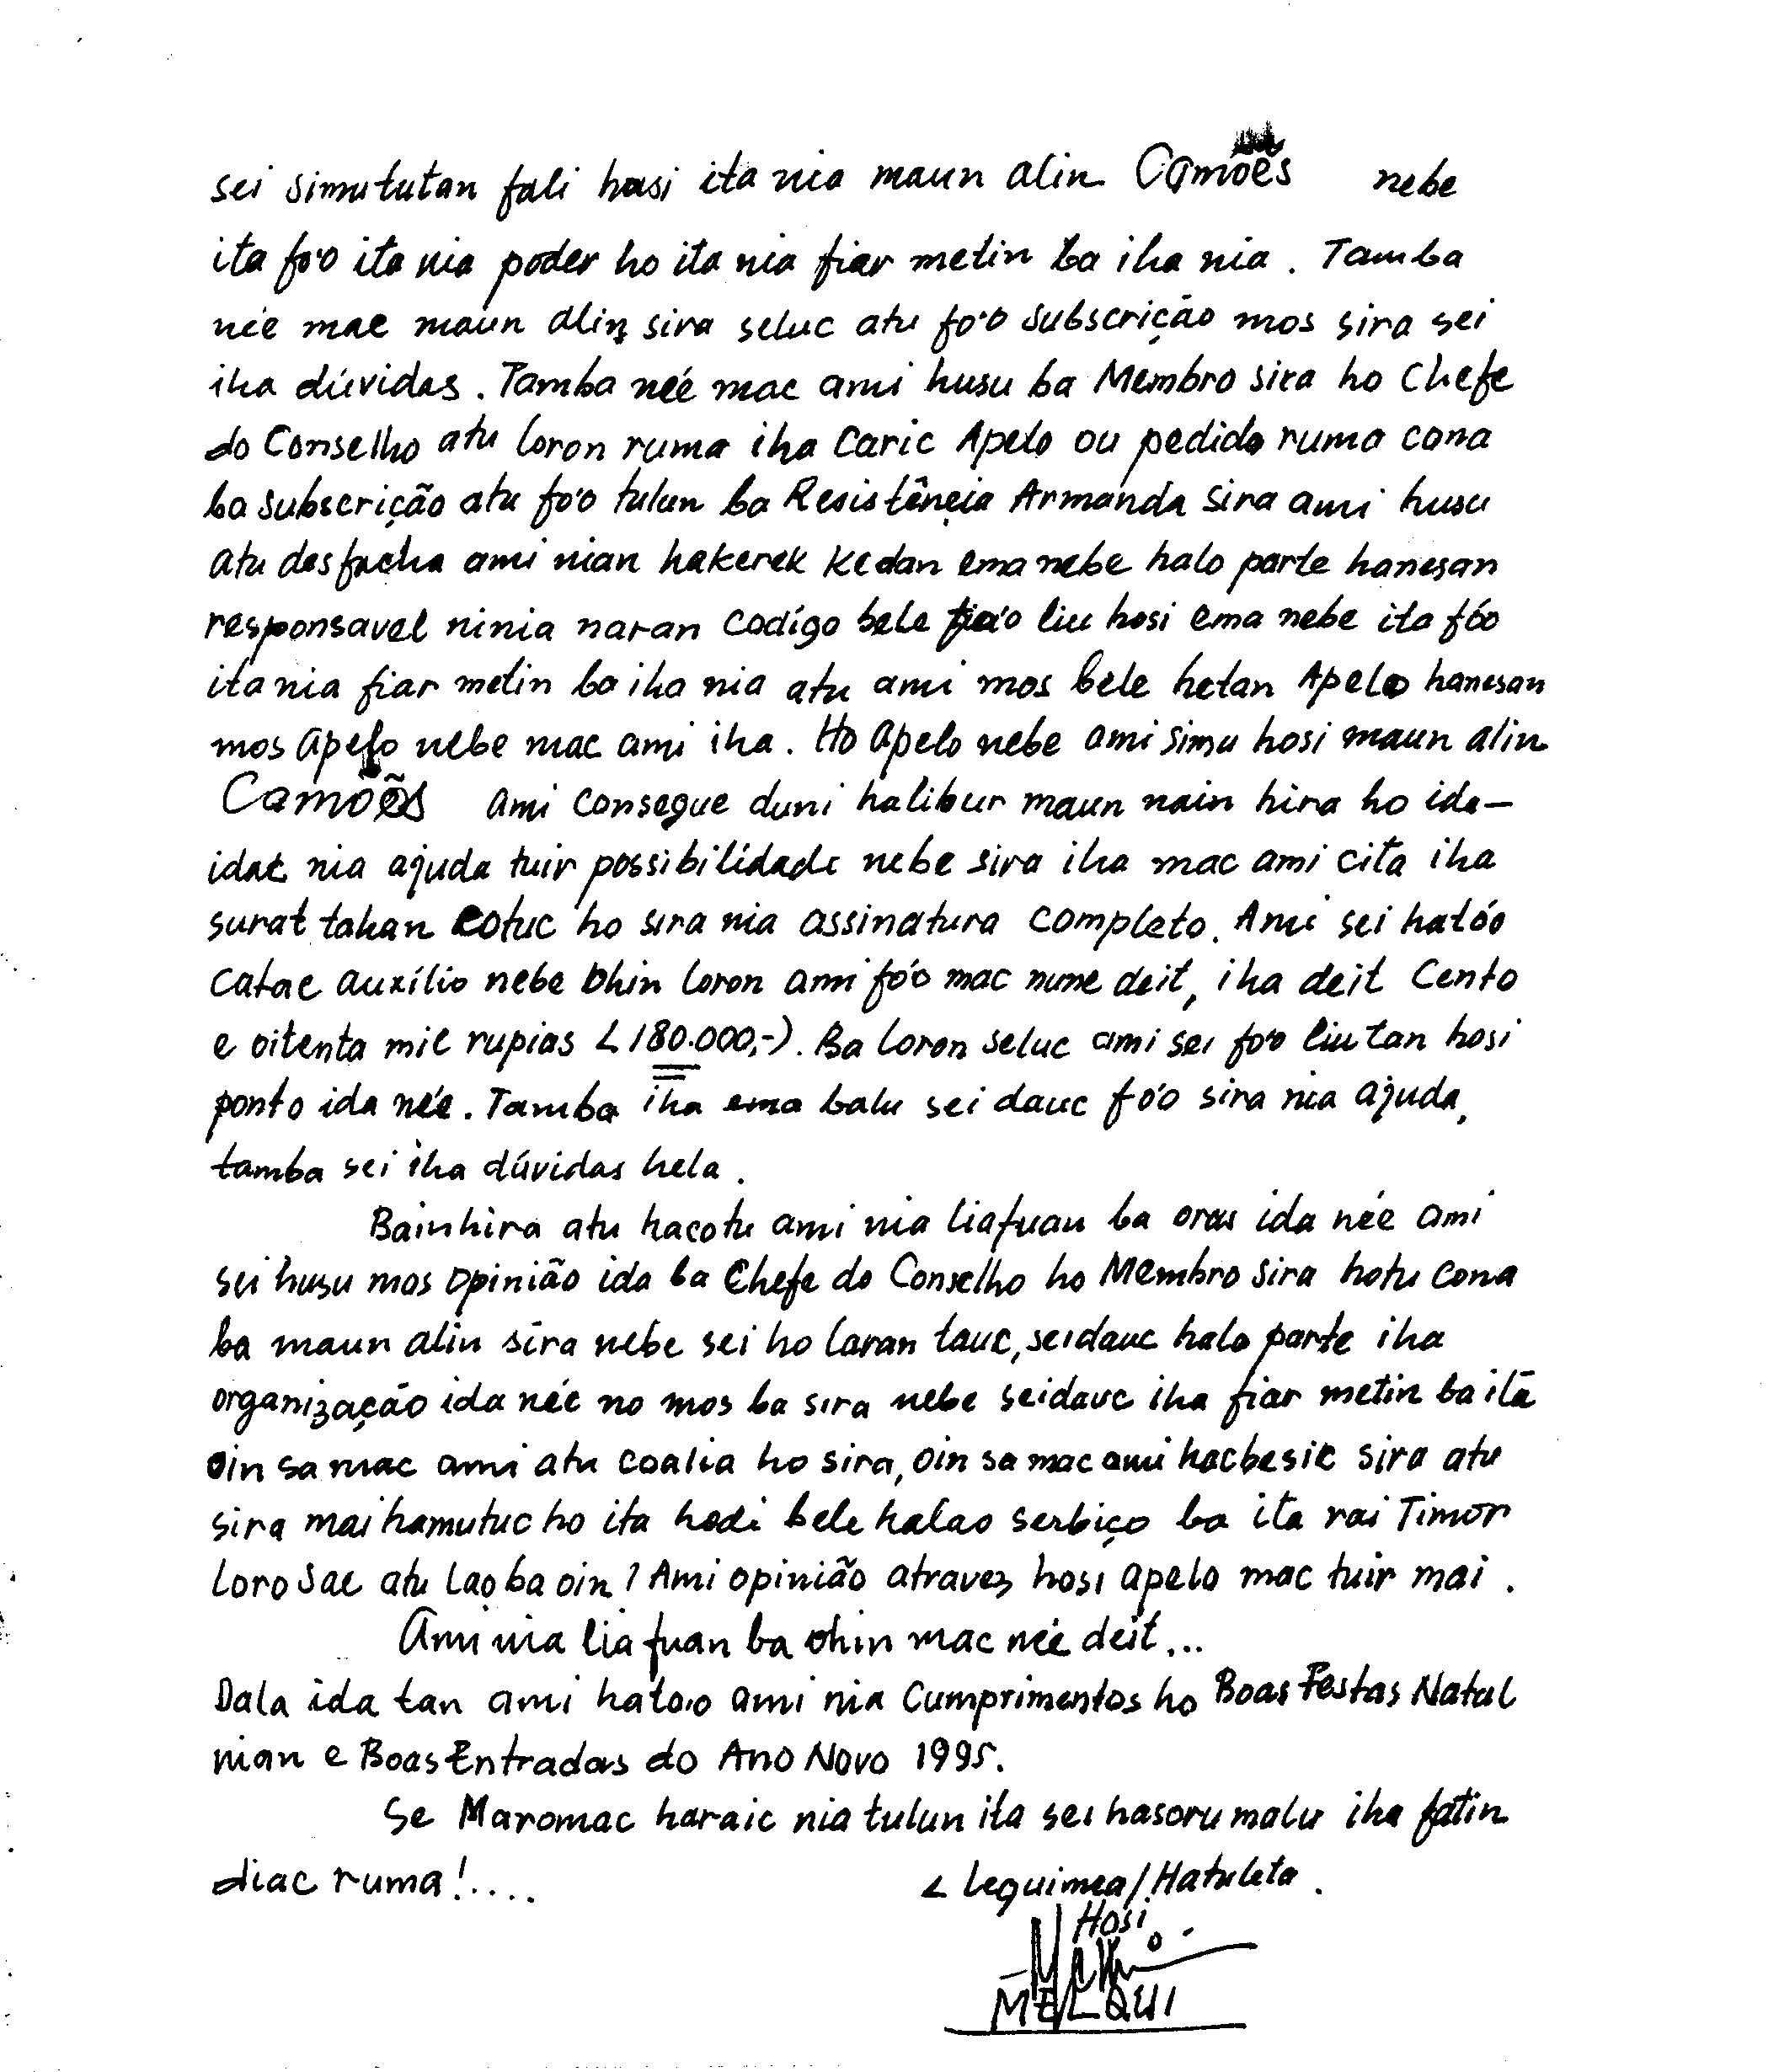 sei simu tutan fali hosi ita nia maun alin Camões nebe
ita fo'o ita nia poder ho ita nia fiar metin ba iha nia. Tamba
née mac maun alin sira seluc atu fo'o subscrição mos sira sei
iha dúvidas. Tamba née mac ami husu ba Membro sira ho Chefe
do Conselho atu loron ruma iha caric Apelo ou pedido ruma cona
ba subscrição atu fo'o tulun ba Resistência Armanda sira ami husu
atu desfacha ami nian hakerek kedan ema nebe halo parte hanesan
responsavel ninia naran codígo bele fó'o liu hosi ema nebe ita fóo
ita nia fiar metin ba iha nia atu ami mos bele hetan Apelo hanesan
mos apelo nebe mac ami iha. Ho apelo nebe ami simu hosi maun alin
Camões ami consegue duni halibur maun nain hira ho ida-
idac nia ajuda tuir possibilidade nebe sira iha mac ami cita iha
surat tahan cotuc ho sira nia assinatura completo. Ami sei hatóo
catac auxílio nebe ohin loron ami fóo mac nune deit, iha deit Cento
e oitenta mil rupias (180.000,-). Ba loron seluc ami sei fo'o liu tan hosi
ponto ida née. Tamba iha ema balu sei dauc fóo sira nia ajuda,
tamba sei iha dúvidas hela.
Bainhira atu hacotu ami nia liafuan ba oras ida née ami
sei husu mos opinião ida ba Chefe do Conselho ho Membro sira hotu cona
ba maun alin sira nebe sei ho laran tauc, seidauc halo parte iha
organização ida née no mos ba sira nebe seidauc iha fiar metin ba ita
oin sa mac ami atu coalia ho sira, oin sa mac ami hacbesic sira atu
sira mai hamutuc ho ita hodi bele halao serbiço ba ita rai Timor
Loro Sae atu lao ba oin? Ami opinião atravez hosi apelo mac tuir mai.
Ami nia lia fuan ba ohin mac née deit...
Dala ida tan ami hato'o ami nia Cumprimentos ho Boas Festas Natal
nian e Boas Entradas do Ano Novo 1995.
Se Maromac haraic nia tulun ita sei hasoru malu iha fatin
diac ruma!....
Lequimea/Hatuleta.
Hosi
MELQUI